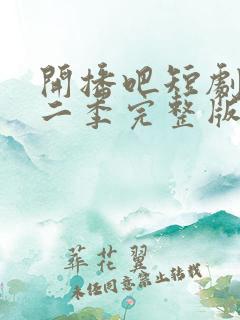 開播吧短劇
二季完整版
葬花翼
未经同意禁止转载